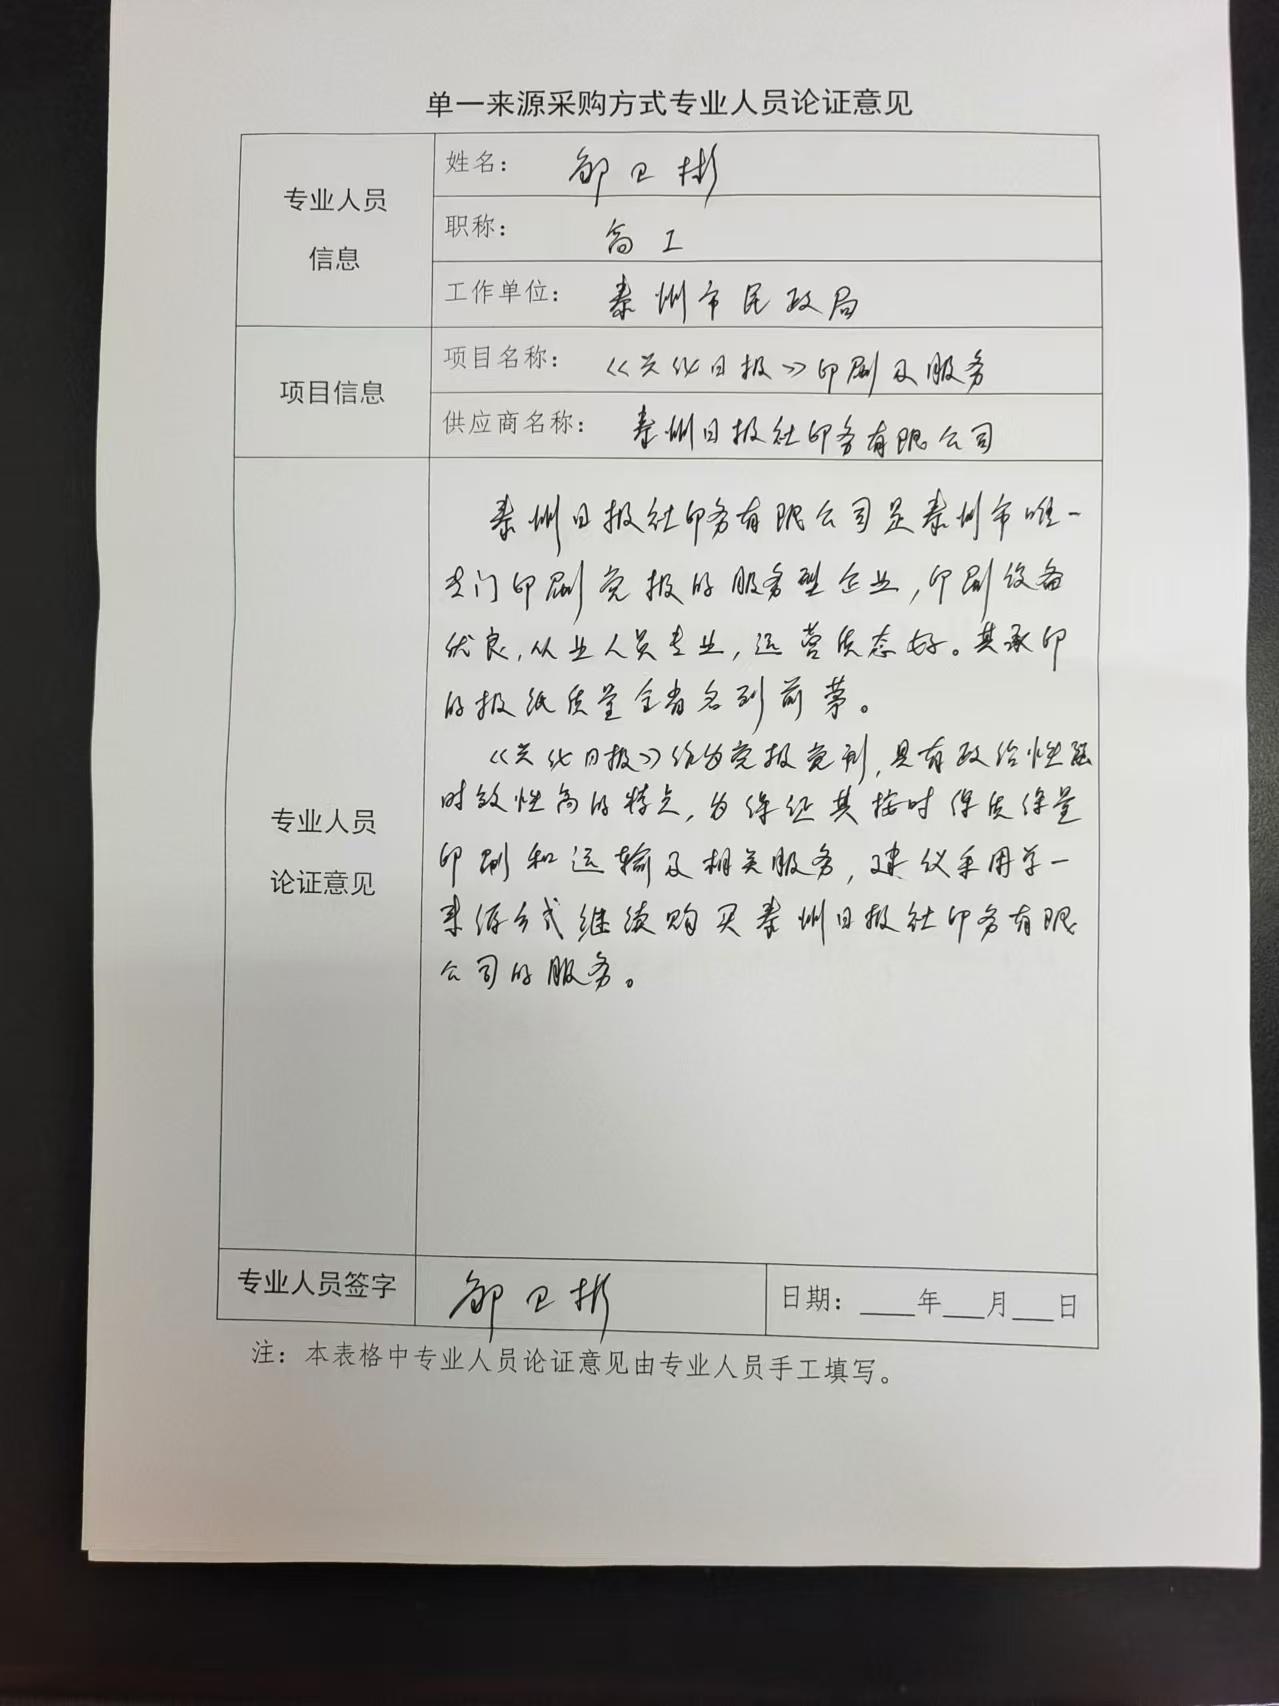 单一来源采购方式专业人员论证意见
专业人员
信息
姓名： 邹卫彬
职称： 高工
工作单位： 泰州市民政局
项目信息
项目名称： 《兴化日报》印刷及服务
供应商名称： 泰州日报社印务有限公司
专业人员
论证意见
泰州日报社印务有限公司是泰州市唯一
专门印刷党报的服务型企业，印刷设备
优良，从业人员专业，运营状态好。其承印
的报纸质量全省名列前茅。
《兴化日报》作为党报党刊，具有政治性强
时效性高的特点，为保证其按时保质保量
印刷和运输及相关服务，建议采用单一
来源方式继续购买泰州日报社印务有限
公司的服务。
专业人员签字
邹卫彬
日期：____年___月___日
注：本表格中专业人员论证意见由专业人员手工填写。